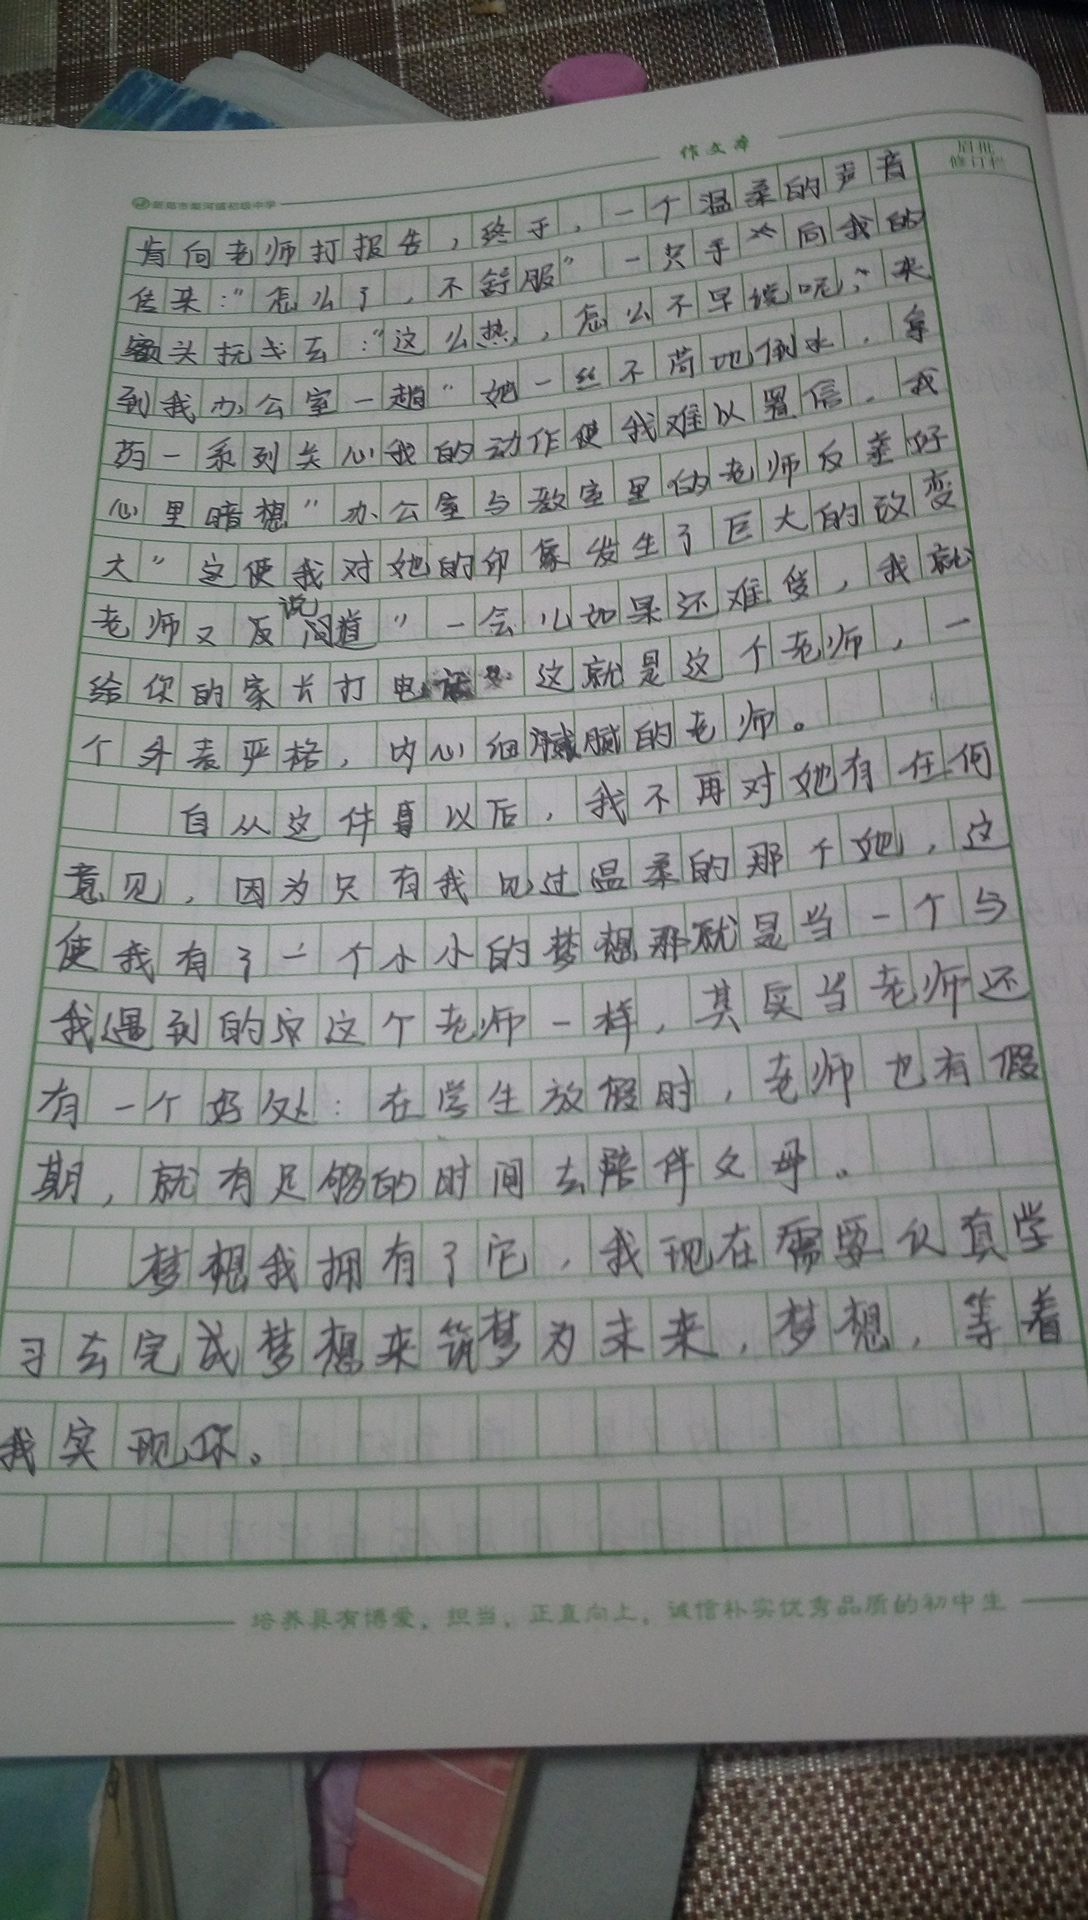 作文本
眉批
修订栏
新郑市梨河镇初级中学
肯向老师打报告，终于，一个温柔的声音
传来：“怎么了，不舒服”一只手向我的
额头抚去：“这么热，怎么不早说呢，来
到我办公室一趟”她一丝不苟地倒水，拿
药一系列关心我的动作使我难以置信。我
心里暗想“办公室与教室里的老师反差好
大”这使我对她的印象发生了巨大的改变
老师又反说道“一会儿如果还难受，我就
给你的家长打电话”这就是这个老师，一
个外表严格，内心细腻的老师。
自从这件事以后，我不再对她有任何
意见，因为只有我见过温柔的那个她，这
使我有了一个小小的梦想那就是当一个与
我遇到的这个老师一样，其实当老师还
有一个好处：在学生放假时，老师也有假
期，就有足够的时间去陪伴父母。
梦想我拥有了它，我现在需要认真学
习去完成梦想来筑梦为未来，梦想，等着
我实现你。
培养具有博爱，担当，正直向上，诚信朴实优秀品质的初中生